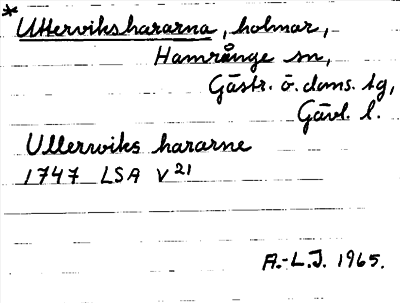 *Uttervikshararna, holmar,
Hamrånge sn,
Gästr. ö. doms. tg,
Gävl. l.
Ullerwiks hararne
1747 LSA V21
A.-L.J. 1965.